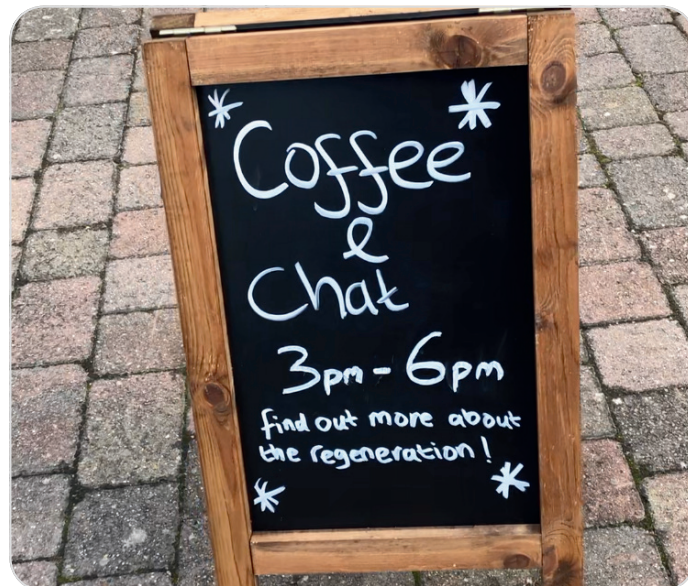 Coffee
&
Chat
3pm - 6pm
find out more about
the regeneration!